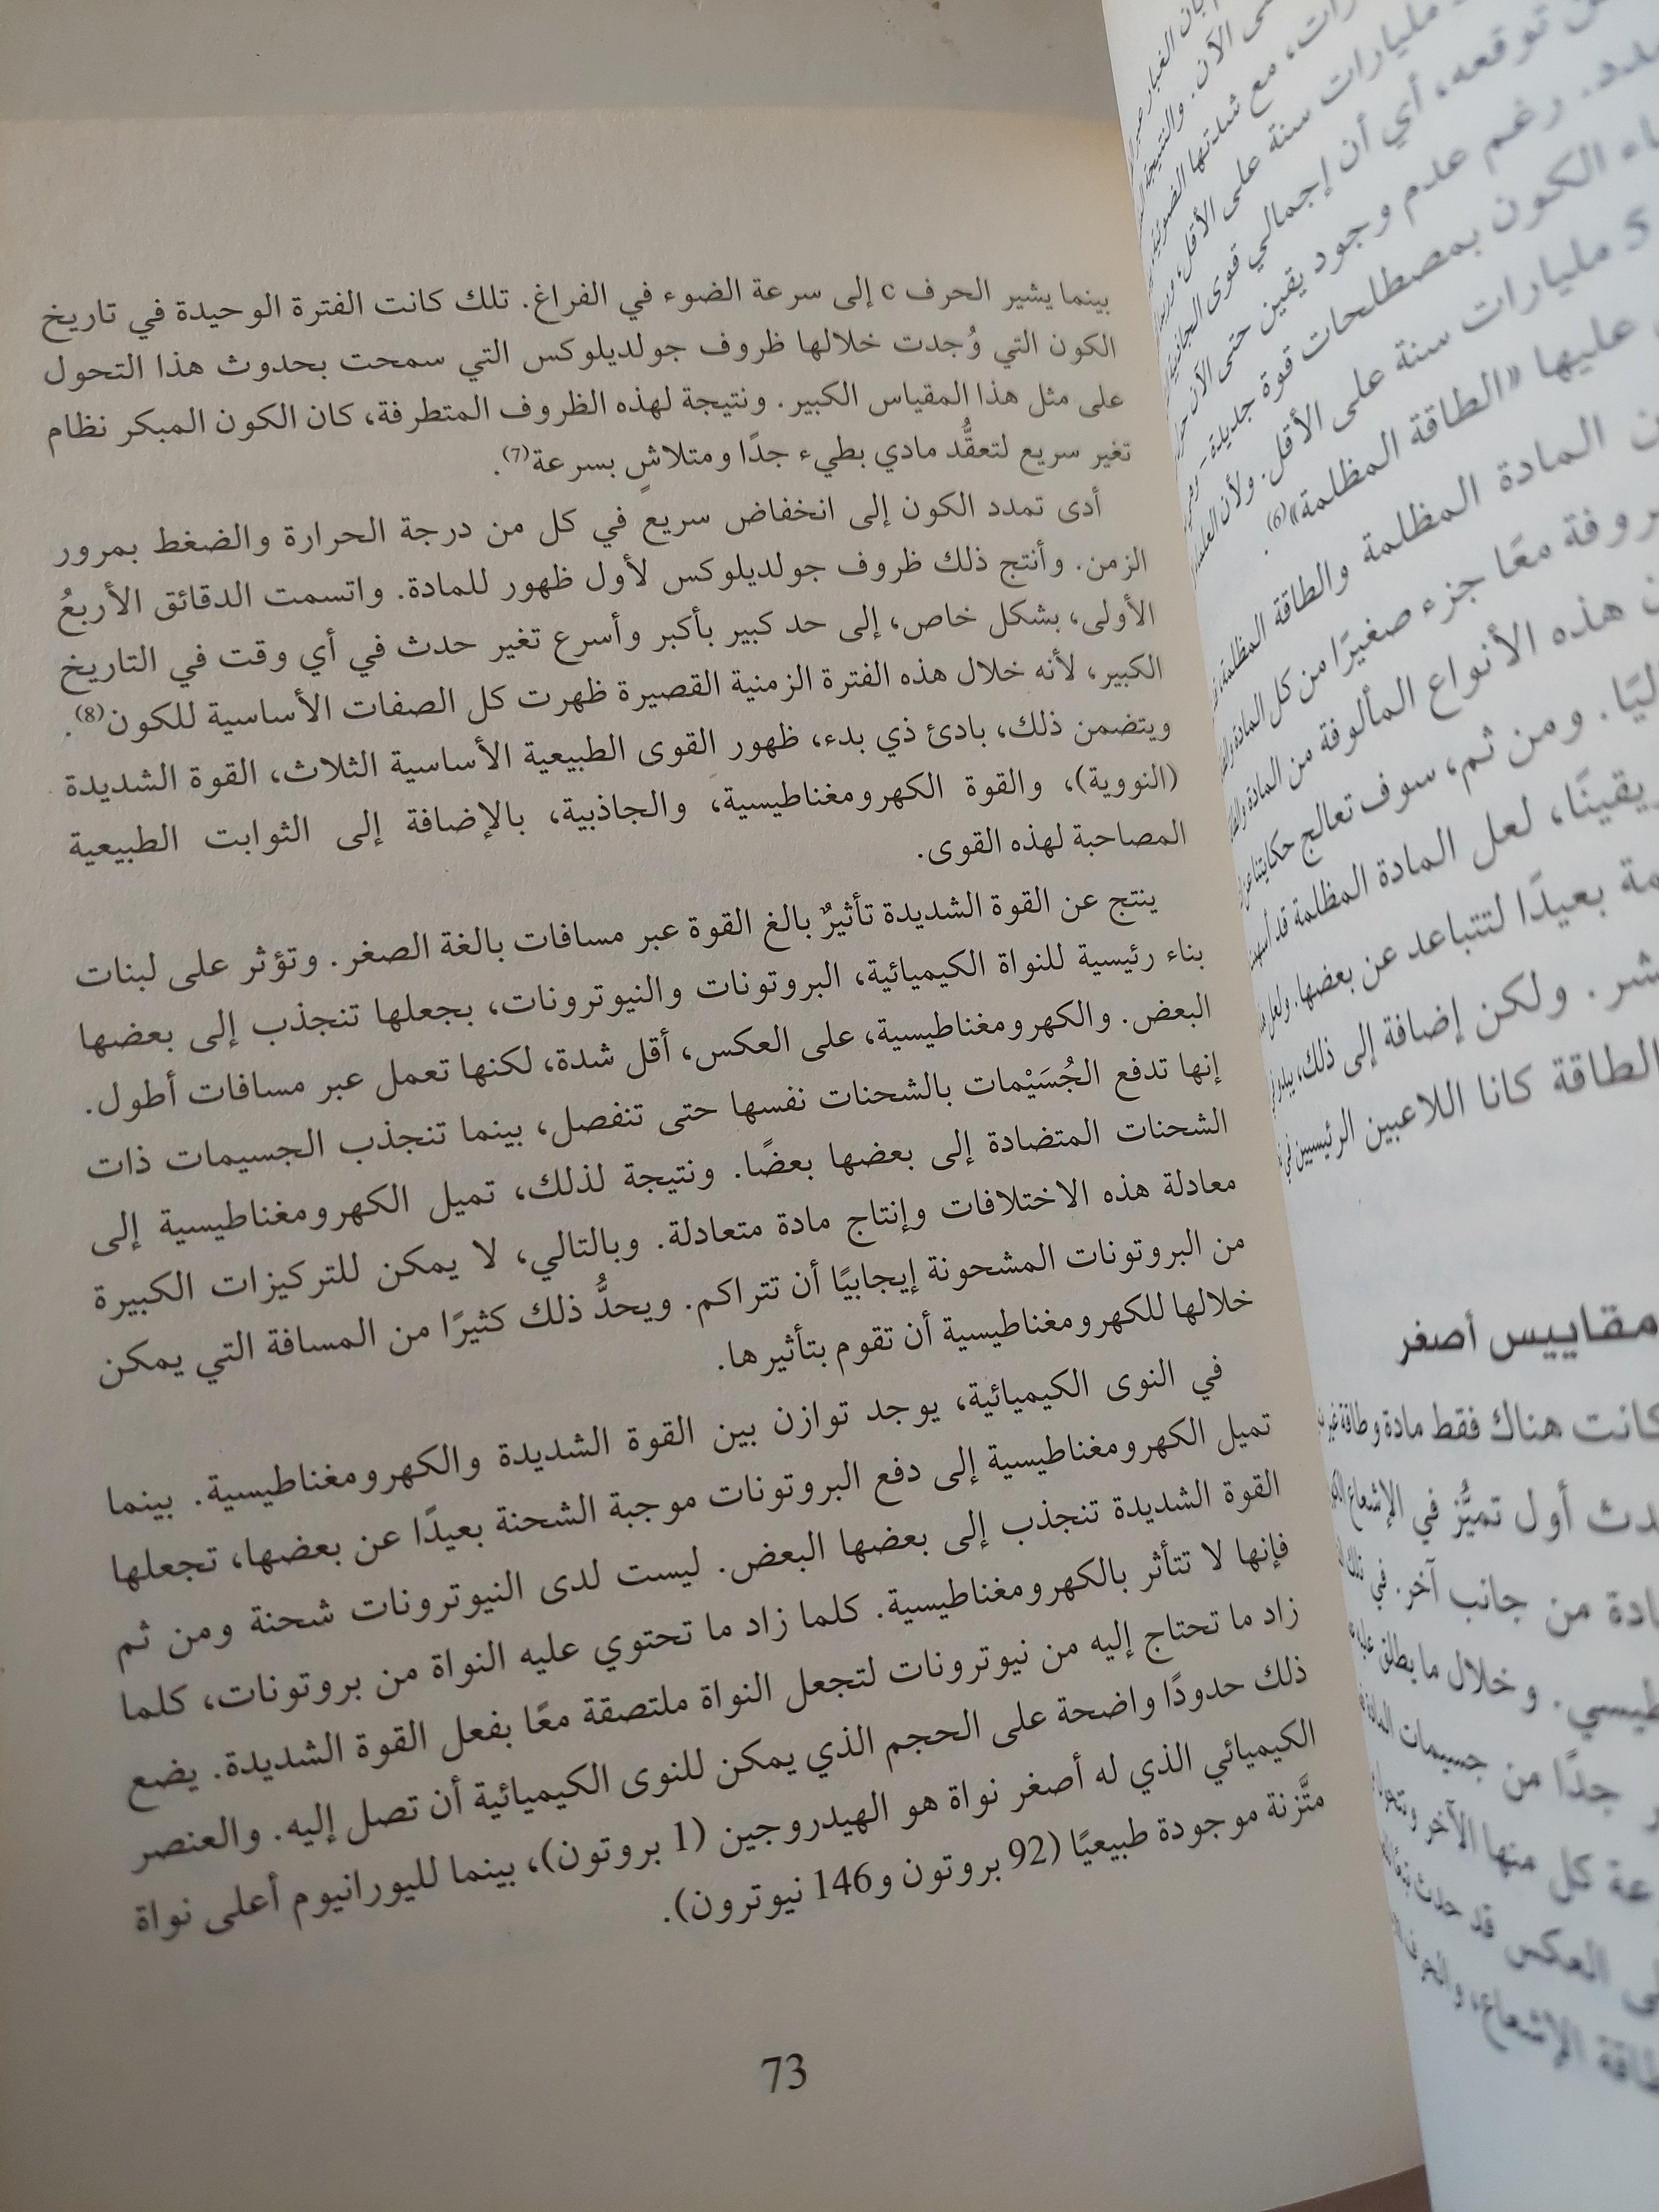 بينما يشير الحرف c إلى سرعة الضوء في الفراغ. تلك كانت الفترة الوحيدة في تاريخ
الكون التي وُجدت خلالها ظروف جولديلوكس التي سمحت بحدوث هذا التحول
على مثل هذا المقياس الكبير. ونتيجة لهذه الظروف المتطرفة، كان الكون المبكر نظام
تغير سريع لتعقُّد مادي بطيء جدًا ومتلاشٍ بسرعة(7).
أدى تمدد الكون إلى انخفاض سريع في كل من درجة الحرارة والضغط بمرور
الزمن. وأنتج ذلك ظروف جولديلوكس لأول ظهور للمادة. واتسمت الدقائق الأربعُ
الأولى، بشكل خاص، إلى حد كبير بأكبر وأسرع تغير حدث في أي وقت في التاريخ
الكبير، لأنه خلال هذه الفترة الزمنية القصيرة ظهرت كل الصفات الأساسية للكون(8).
ويتضمن ذلك، بادئ ذي بدء، ظهور القوى الطبيعية الأساسية الثلاث، القوة الشديدة
(النووية)، والقوة الكهرومغناطيسية، والجاذبية، بالإضافة إلى الثوابت الطبيعية
المصاحبة لهذه القوى.
ينتج عن القوة الشديدة تأثيرٌ بالغ القوة عبر مسافات بالغة الصغر. وتؤثر على لبنات
بناء رئيسية للنواة الكيميائية، البروتونات والنيوترونات، بجعلها تنجذب إلى بعضها
البعض. والكهرومغناطيسية، على العكس، أقل شدة، لكنها تعمل عبر مسافات أطول.
إنها تدفع الجُسَيْمات بالشحنات نفسها حتى تنفصل، بينما تنجذب الجسيمات ذات
الشحنات المتضادة إلى بعضها بعضًا. ونتيجة لذلك، تميل الكهرومغناطيسية إلى
معادلة هذه الاختلافات وإنتاج مادة متعادلة. وبالتالي، لا يمكن للتركيزات الكبيرة
من البروتونات المشحونة إيجابيًا أن تتراكم. ويحدُّ ذلك كثيرًا من المسافة التي يمكن
خلالها للكهرومغناطيسية أن تقوم بتأثيرها.
في النوى الكيميائية، يوجد توازن بين القوة الشديدة والكهرومغناطيسية. بينما
تميل الكهرومغناطيسية إلى دفع البروتونات موجبة الشحنة بعيدًا عن بعضها، تجعلها
القوة الشديدة تنجذب إلى بعضها البعض. ليست لدى النيوترونات شحنة ومن ثم
فإنها لا تتأثر بالكهرومغناطيسية. كلما زاد ما تحتوي عليه النواة من بروتونات، كلما
زاد ما تحتاج إليه من نيوترونات لتجعل النواة ملتصقة معًا بفعل القوة الشديدة. يضع
ذلك حدودًا واضحة على الحجم الذي يمكن للنوى الكيميائية أن تصل إليه. والعنصر
الكيميائي الذي له أصغر نواة هو الهيدروجين (1 بروتون)، بينما لليورانيوم أعلى نواة
متَّزنة موجودة طبيعيًا (92 بروتون و146 نيوترون).
73
مليارات سنة على الأقل
توقعه، أي أن إجمالي قوى الجاذبية
رغم عدم وجود يقين حتى الآن
الكون بمصطلحات قوة جديدة
5 مليارات سنة على الأقل. ولأن
عليها «الطاقة المظلمة»(6).
المادة المظلمة والطاقة المظلمة
معًا جزء صغيرًا من كل المادة
هذه الأنواع المألوفة من المادة
ومن ثم، سوف تعالج حكايتنا
لعل المادة المظلمة قد
بعيدًا لتتباعد عن بعضها. ولعل
ولكن إضافة إلى ذلك، يبدو
الطاقة كانا اللاعبين الرئيسيين في
مقاييس أصغر
كانت هناك فقط مادة وطاقة
أول تميُّز في الإشعاع
من جانب آخر. في
وخلال ما يطلق
جدًا من جسيمات
كل منها الآخر
العكس قد حدث